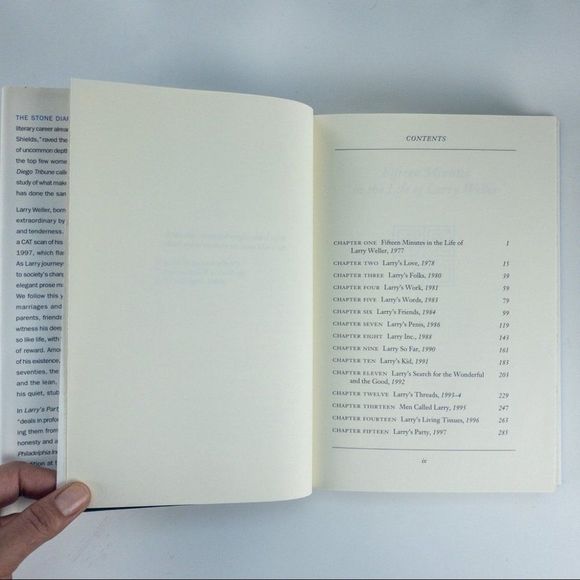 THE STONE DIAR
literary career alread
Shields," raved the
of uncommon depth
the top few wome
Diego Tribune calle
study of what make
has done the san
Larry Weller, born
extraordinary by
and tenderness.
a CAT scan of his
1997, which flas
As Larry journeys
to society's chang
elegant prose ma
We follow this y
marriages and
parents, friends
witness his deep
so like life, with
of reward. Amon
of his existence,
seventies, the
and the lean,
his quiet, stub
In Larry's Party
"deals in profou
ing them from
honesty and a
Philadelphia Inq
tradition at
CONTENTS
Fifteen Minutes
in the Life of Larry Weller
CHAPTER ONE Fifteen Minutes in the Life of 1
Larry Weller, 1977
CHAPTER TWO Larry's Love, 1978 15
CHAPTER THREE Larry's Folks, 1980 39
CHAPTER FOUR Larry's Work, 1981 59
CHAPTER FIVE Larry's Words, 1983 79
CHAPTER SIX Larry's Friends, 1984 99
CHAPTER SEVEN Larry's Penis, 1986 119
CHAPTER EIGHT Larry Inc., 1988 143
CHAPTER NINE Larry So Far, 1990 161
CHAPTER TEN Larry's Kid, 1991 183
CHAPTER ELEVEN Larry's Search for the Wonderful 203
and the Good, 1992
CHAPTER TWELVE Larry's Threads, 1993–4 229
CHAPTER THIRTEEN Men Called Larry, 1995 247
CHAPTER FOURTEEN Larry's Living Tissues, 1996 263
CHAPTER FIFTEEN Larry's Party, 1997 285
ix